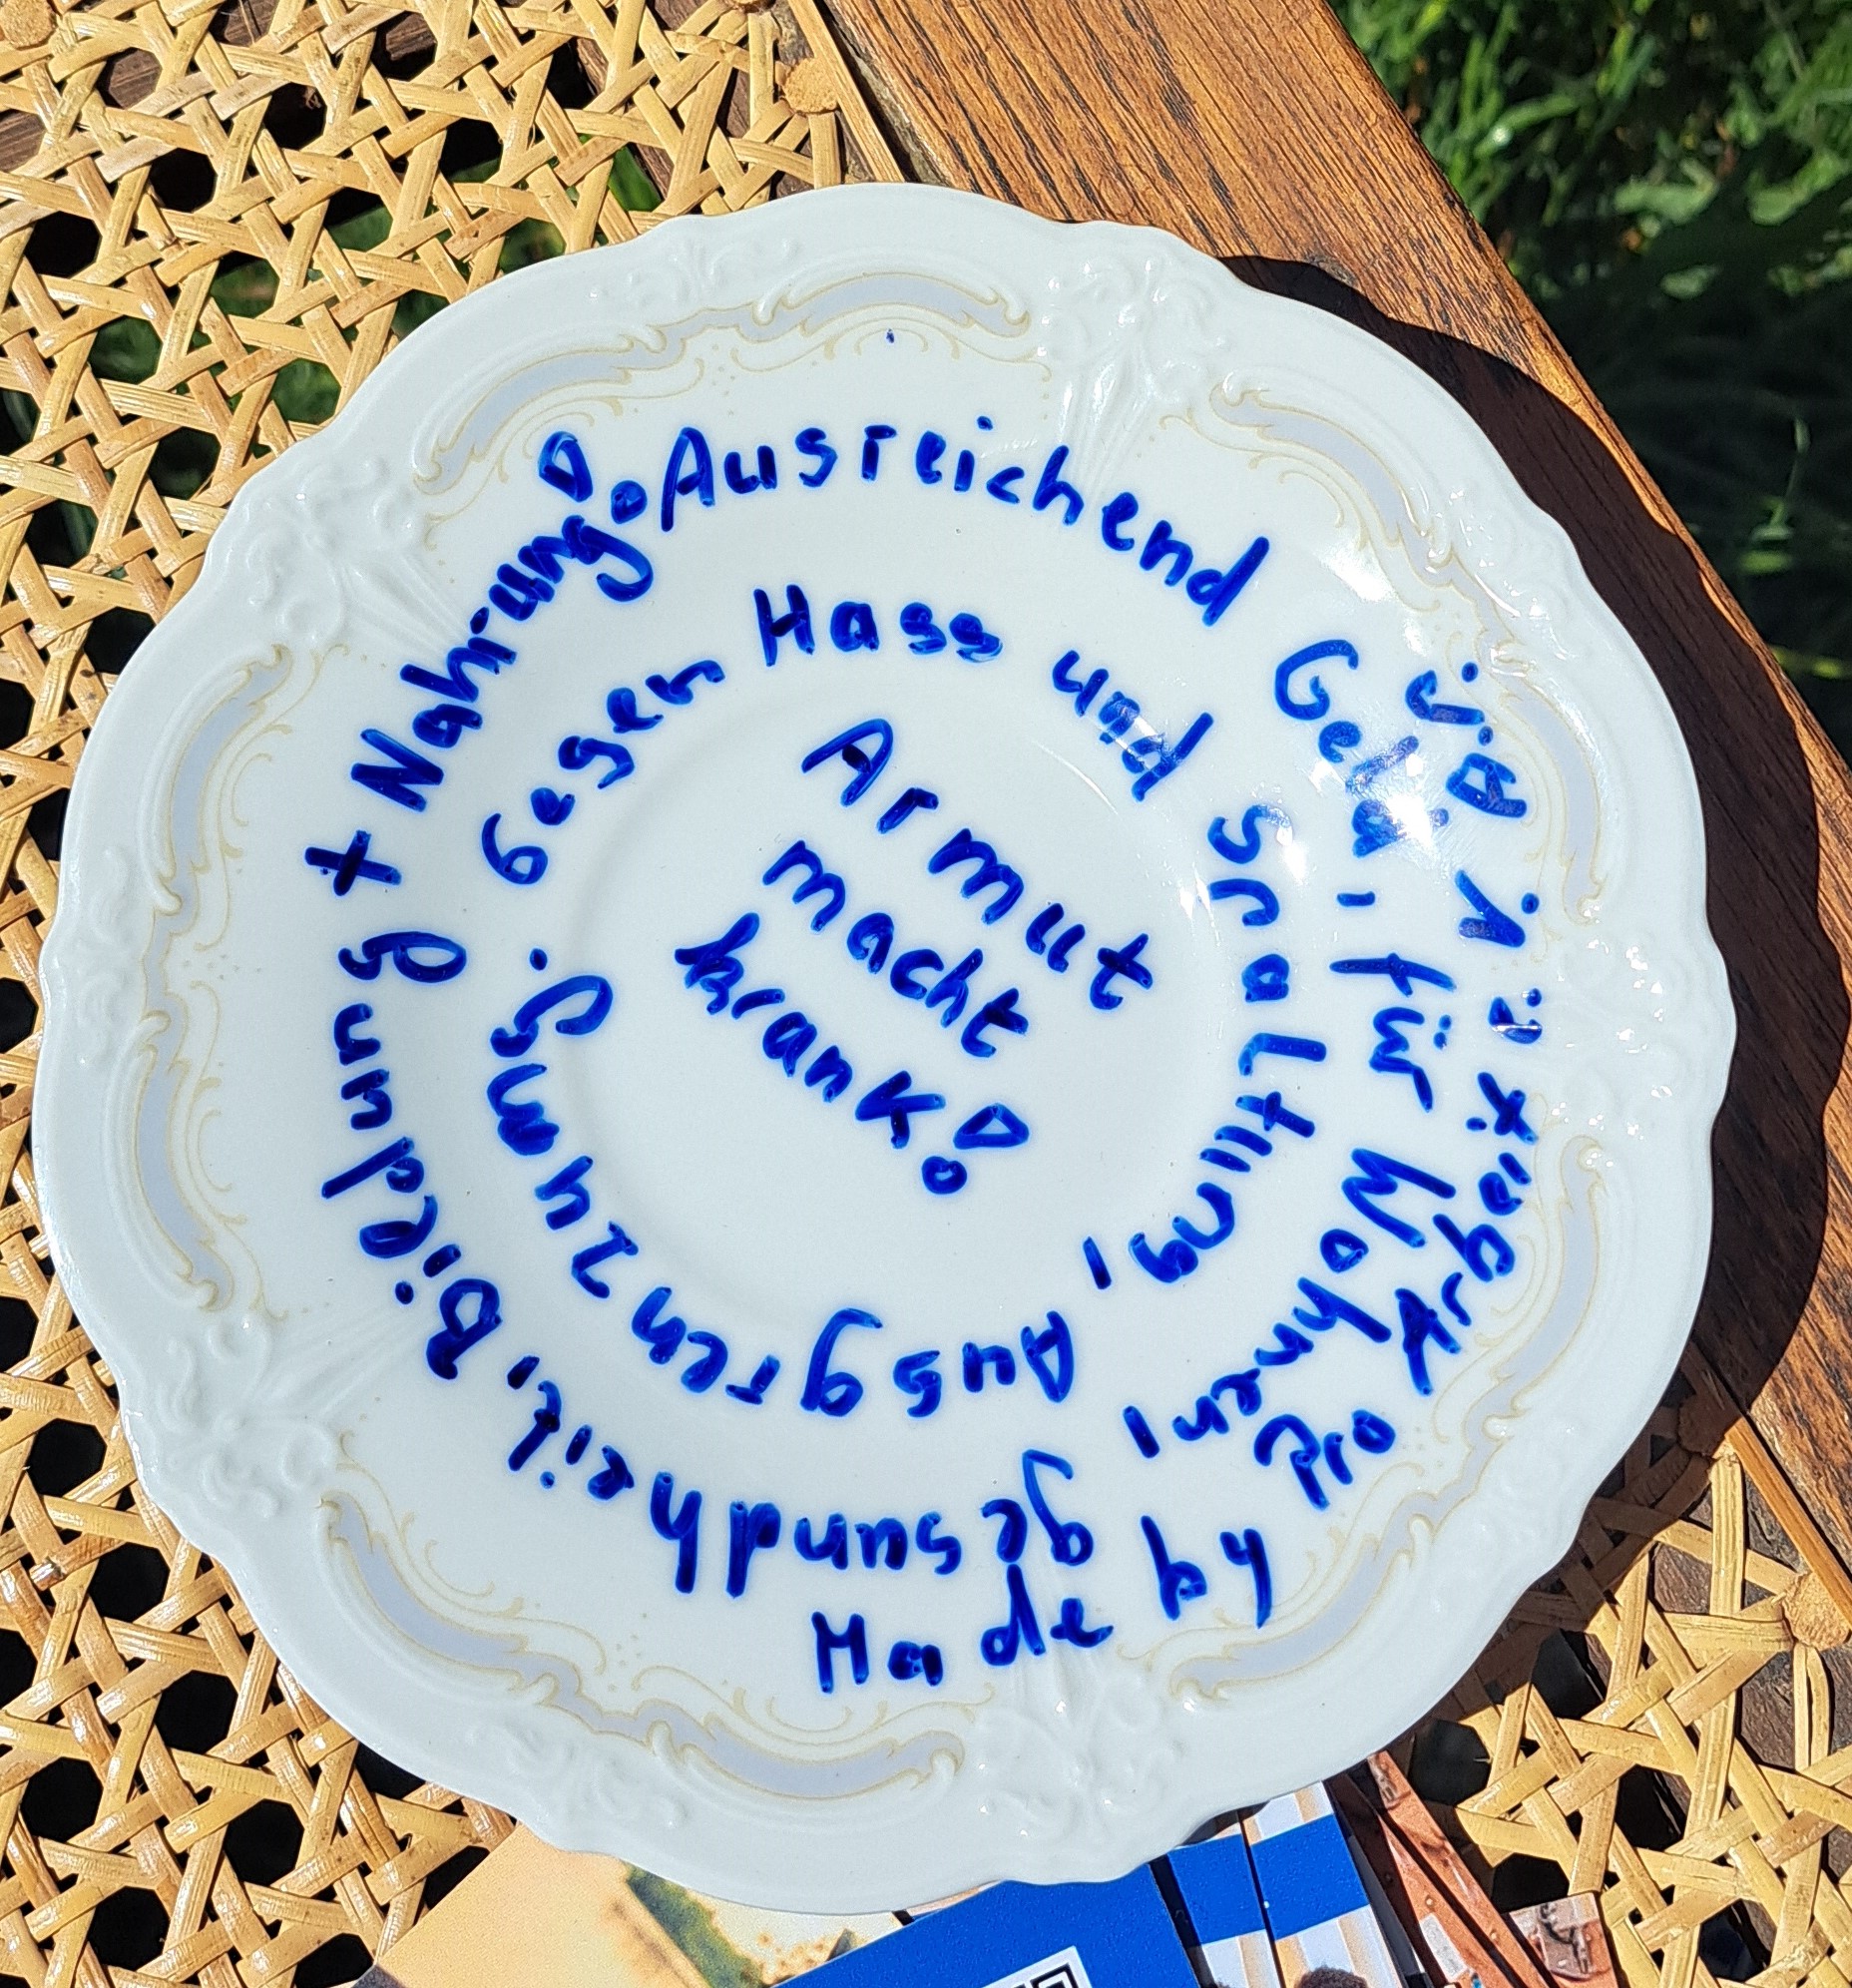 Armut
macht
krank!
Gegen Hass und Spaltung, Ausgrenzung.
Ausreichend Geld, für Wohnen, gesundheit, Bildung + Nahrung!
Made by